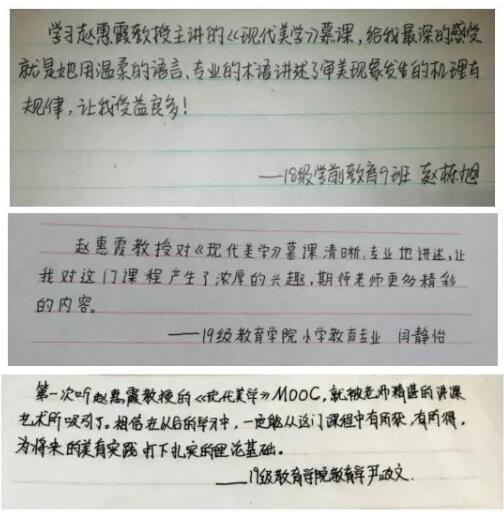 学习赵惠霞教授主讲的《现代美学》慕课,给我最深的感受
就是她用温柔的语言、专业的术语讲述了审美现象发生的机理与
规律,让我受益良多!
——18级学前教育9班 赵栋旭
赵惠霞教授对《现代美学》慕课清晰、专业地讲述,让
我对这门课程产生了浓厚的兴趣,期待老师更多精彩
的内容。
——19级教育学院小学教育专业 闫静怡
第一次听赵惠霞教授的《现代美学》MOOC,就被老师精湛的讲课
艺术所吸引了。相信在以后的学习中,一定能从这门课程中有所获,有所得,
为将来的美育实践打下扎实的理论基础。
——19级教育学院教育学 尹政文